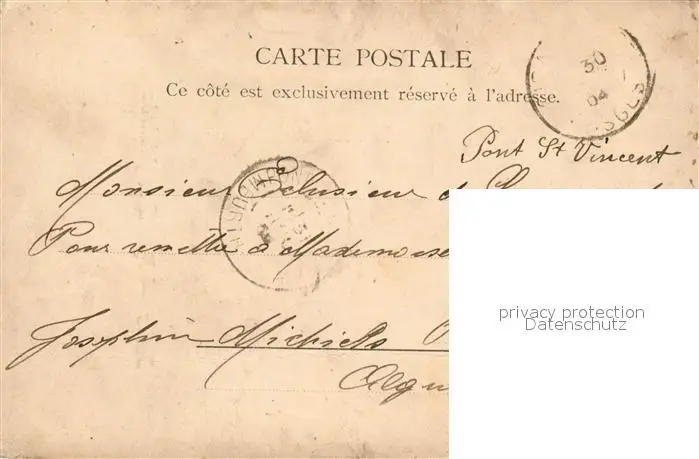 CARTE POSTALE
Ce côté est exclusivement réservé à l'adresse.
30
04
Pont St Vincent
Monsieur Eclusier
Pour remettre à Mademoise
Joséphine Michiels
privacy protection
Datenschutz